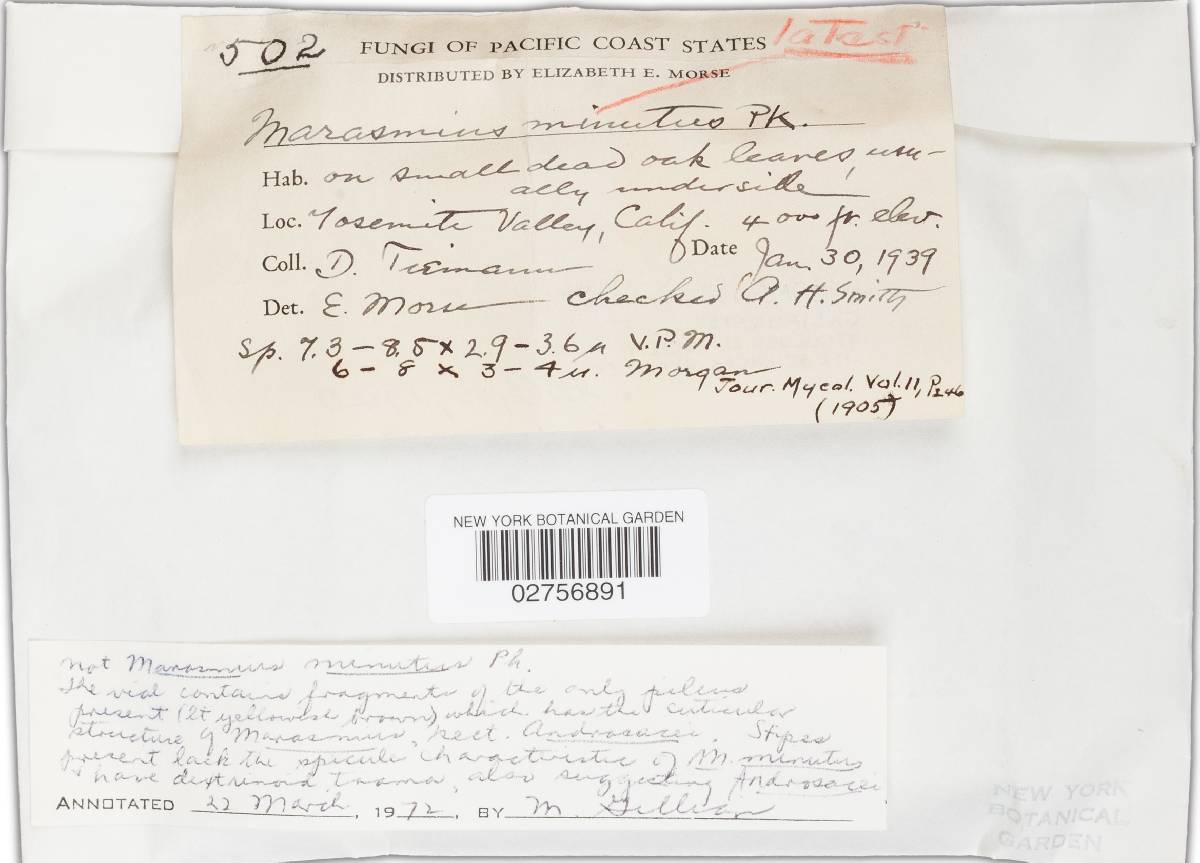 502 FUNGI OF PACIFIC COAST STATES latest
DISTRIBUTED BY ELIZABETH E. MORSE
Marasmius minutus PK.
Hab. on small dead oak leaves, usu-
ally underside
Loc. Yosemite Valley, Calif. 4000 ft. elev.
Coll. D. Tiemann Date Jan. 30, 1939
Det. E. Morse checked A. H. Smith
Sp. 7.3 – 8.5 x 2.9 – 3.6 µ V.P.M.
6 – 8 x 3 – 4 µ. Morgan
Jour. Mycol. Vol. 11, P. 246
(1905)
NEW YORK BOTANICAL GARDEN
02756891
not Marasmius minutus Pk.
The vial contains fragments of the only pileus
present (lt yellowish brown) which has the cuticular
structure of Marasmius, sect. Androsacei. Stipes
present lack the spicule characteristic of M. minutus
& have dextrinoid trama, also suggesting Androsacei
ANNOTATED 22 March, 1972, BY M. Gilliam
NEW YORK
BOTANICAL
GARDEN